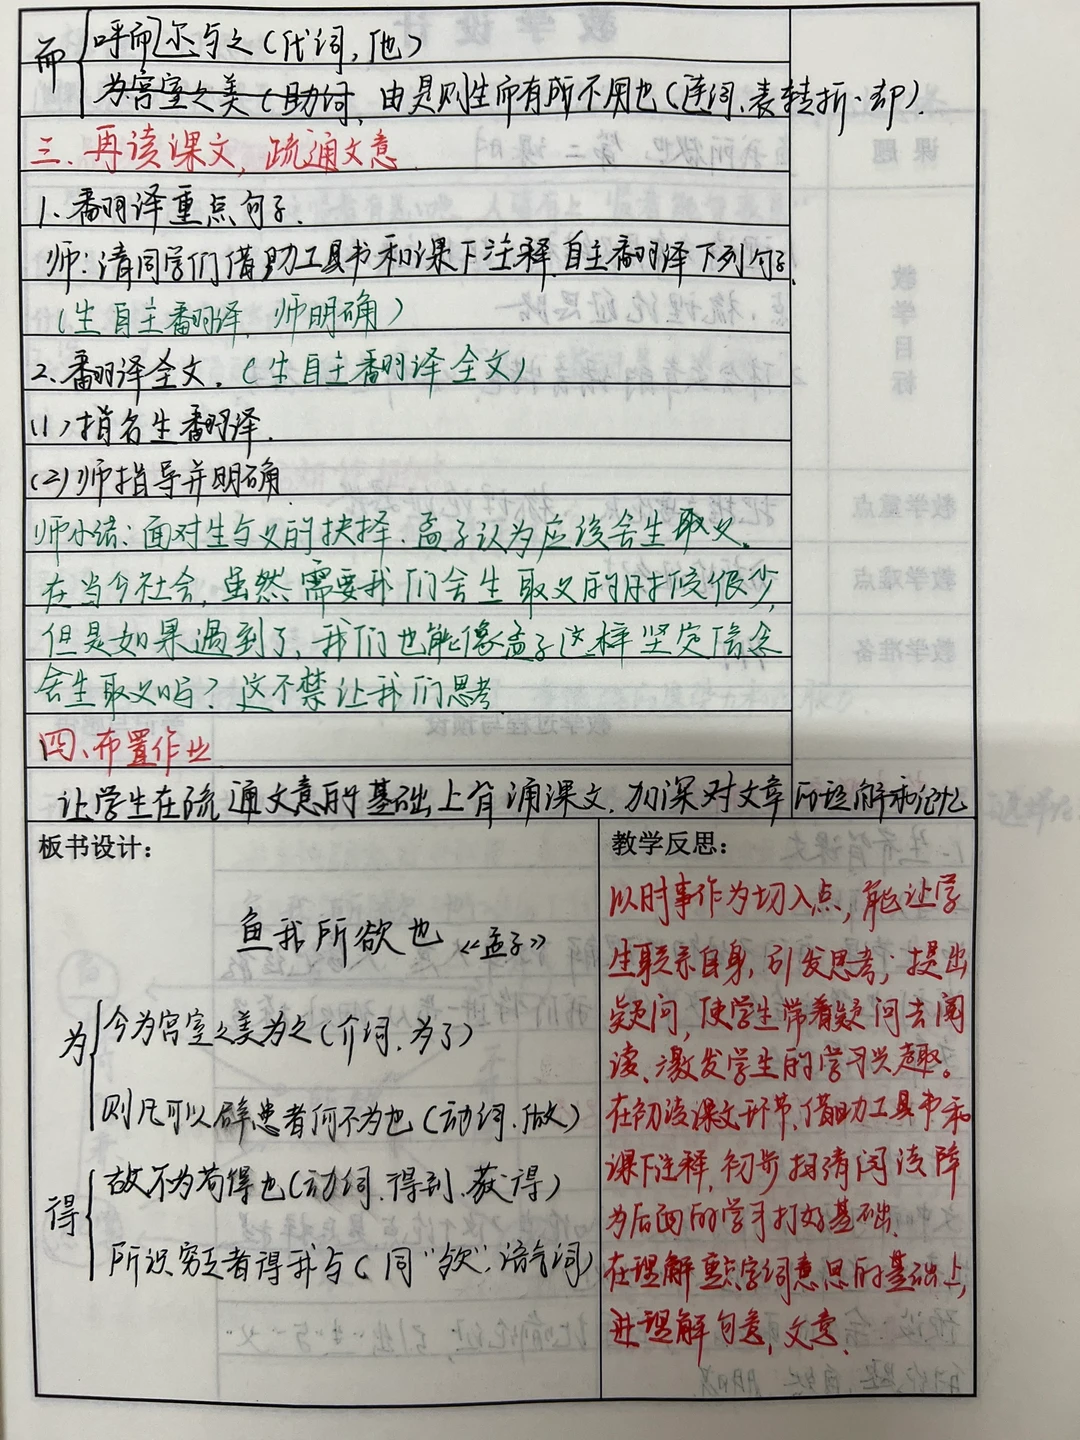 而
呼尔而与之（代词，他）
为宫室之美（助词，由是则生而有所不用也（连词，表转折，却）.
三、再读课文，疏通文意.
1、翻译重点句子.
师：请同学们借助工具书和课下注释，自主翻译下列句子.
（生自主翻译，师明确）
2、翻译全文.（生自主翻译全文）
(1)指名生翻译.
(2)师指导并明确.
师小结：面对生与义的抉择，孟子认为应该舍生取义.
在当今社会，虽然需要我们舍生取义的时候很少，
但是如果遇到了，我们也能像孟子这样坚定信念
舍生取义吗？这不禁让我们思考.
四、布置作业
让学生在疏通文意的基础上背诵课文，加深对文章的理解和记忆
板书设计：
鱼我所欲也 《孟子》
为
今为宫室之美为之（介词，为了）
则凡可以辟患者何不为也（动词，做）
得
故不为苟得也（动词，得到、获得）
所识穷乏者得我与（同“欤”，语气词）
教学反思：
以时事作为切入点，能让学
生联系自身，引发思考；提出
疑问，使学生带着疑问去阅
读、激发学生的学习兴趣。
在初读课文环节，借助工具书和
课下注释，初步扫清阅读障
为后面的学习打好基础.
在理解重点字词意思的基础上，
进理解句意，文意.
课题
教学目标
教学重点
教学难点
教学准备